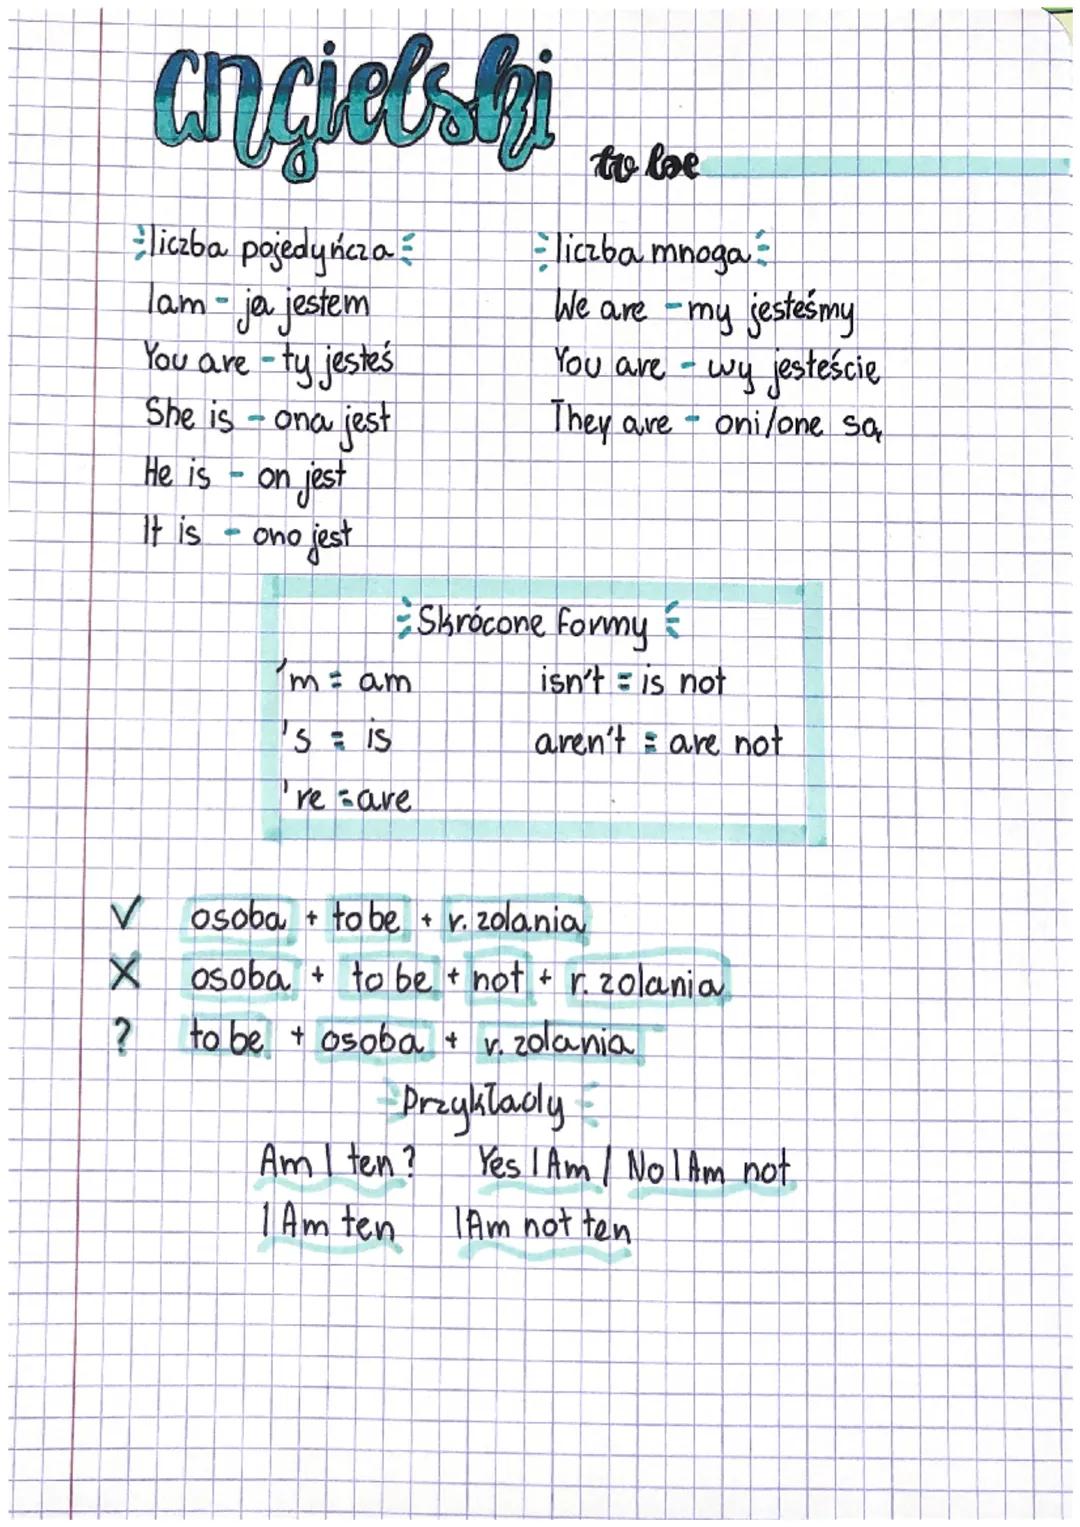 angielski
to be
liczba pojedyńcza
I am - ja jestem
You are - ty jesteś
She is - ona jest
He is - on jest
It is - ono jest
liczba mnoga
We are - my jesteśmy
You are - wy jesteście
They are - oni/one są
Skrócone formy
'm = am
's = is
're = are
isn't = is not
aren't = are not
√ osoba + to be + r. zdania
X osoba + to be + not + r. zdania
? to be + osoba + r. zdania
Przykłady
Am I ten? Yes I Am / No I Am not
I Am ten I Am not ten